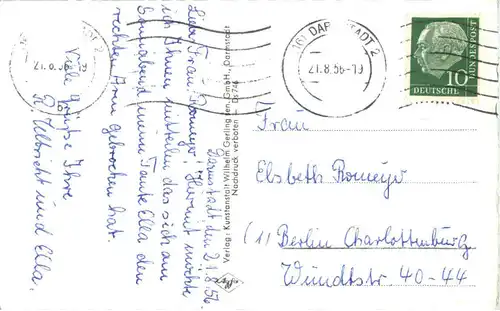 Darmstadt den 21.8.56.
Liebe Frau Romeyer! Hiermit möchte
ich Ihnen mitteilen das sich am
Sonnabend meine Tante Ella den
rechten Arm gebrochen hat.
Viele Grüße Ihre
R. Ulbricht und Ella.
Verlag: Kunstanstalt Wilhelm Gerling sen. GmbH., Darmstadt
Nachdruck verboten — Ds 746
(16) DARMSTADT 2
21.8.56-19
10
DEUTSCHE
BUNDESPOST
Frau
Elsbeth Romeyer
(1) Berlin Charlottenburg
Wundtstr. 40-44